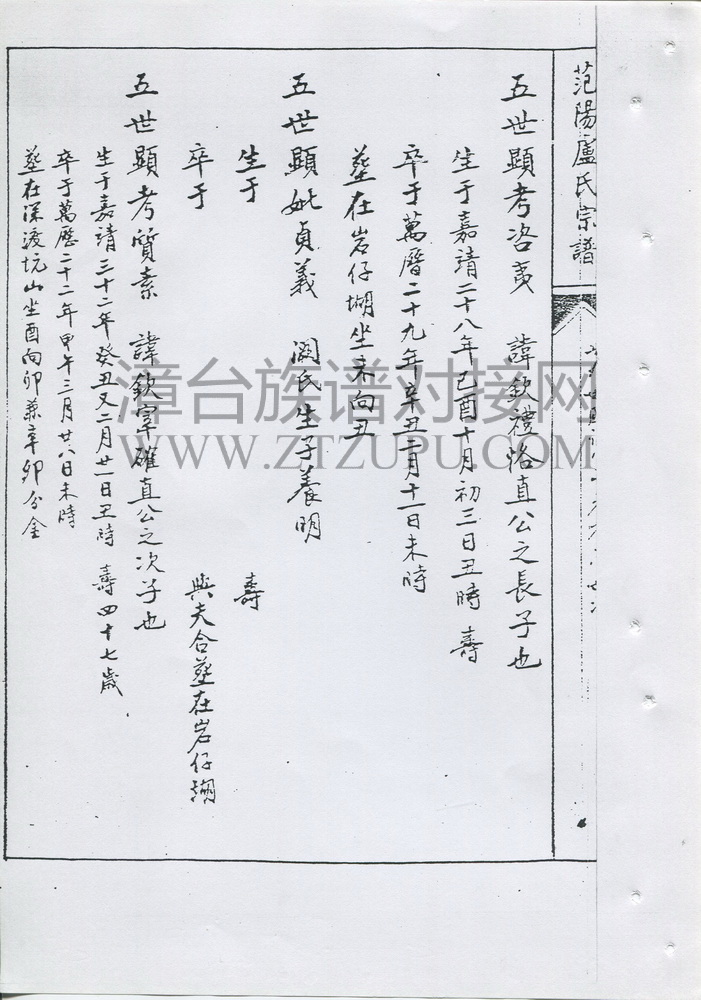 范陽盧氏宗譜
五世顯考咨夷 諱欽禮恪直公之長子也
生于嘉靖二十八年己酉十月初三日丑時 壽
卒于萬曆二十九年辛丑二月十一日未時
塟在岩仔塘坐未向丑
五世顯妣貞義 阙氏生子養明
生于 壽
卒于 與夫合塟在岩仔塘
五世顯考質素 諱欽宰確直公之次子也
生于嘉靖三十二年癸丑又二月廿一日丑時 壽四十七歲
卒于萬歷二十二年甲午三月廿八日未時
塟在深渡坑山坐酉向卯兼辛卯分金
漳台族谱对接网
WWW.ZTZUPU.COM